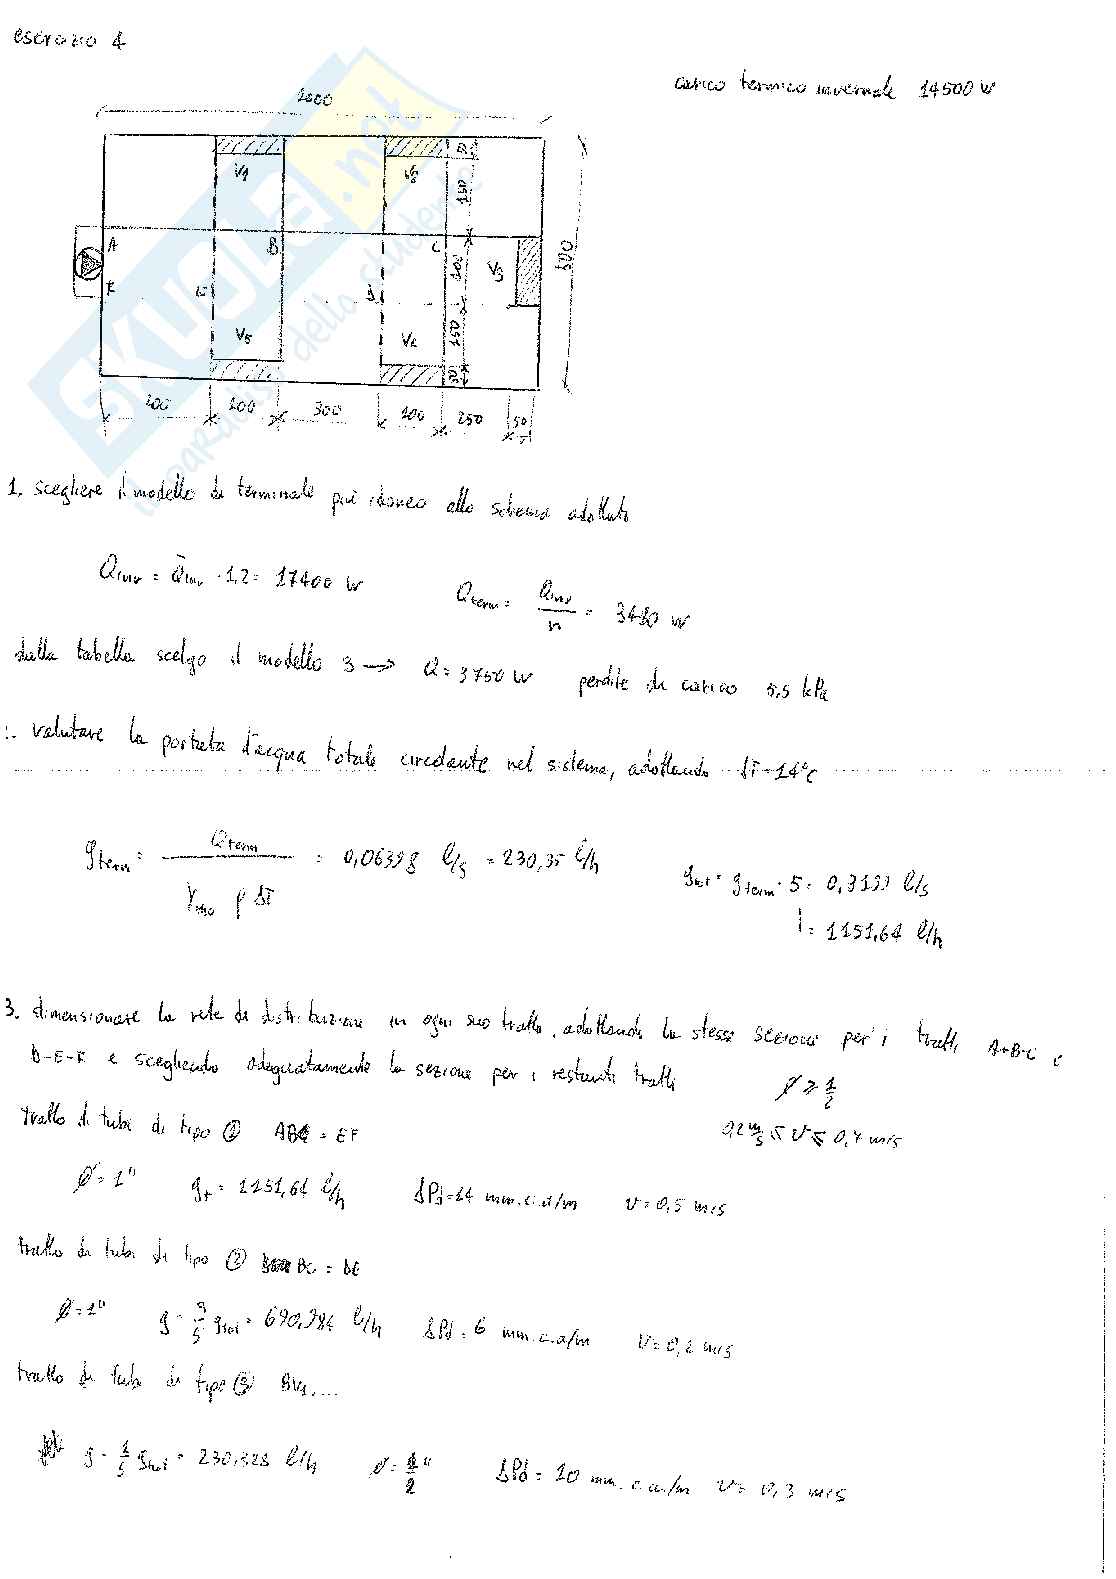 esercizio 4
carico termico invernale 14500 W
1000
V1
V2
50
150
A
B
C
100
V3
500
F
E
D
150
V5
V4
50
200 100 300 100 250 50
SKUOLA.net
il portale dello studente
1. scegliere il modello di terminale più idoneo allo schema adottato
Qinv = Q̄inv · 1,2 = 17400 W
Qterm = Qinv/n = 3480 W
dalla tabella scelgo il modello 3 → Q = 3750 W perdite di carico 5,5 kPa
valutare la portata d'acqua totale circolante nel sistema, adottando ΔT = 14°C
gterm = Qterm / γH2O ρ ΔT = 0,06398 l/s = 230,35 l/h
gtot = gterm · 5 = 0,3199 l/s
= 1151,64 l/h
3. dimensionare la rete di distribuzione in ogni suo tratto, adottando la stessa sezione per i tratti A-B-C e
D-E-F e scegliendo adeguatamente la sezione per i restanti tratti
Ø ≥ 1/2
0,2 m/s ≤ v ≤ 0,7 m/s
tratto di tubi di tipo ① AB = EF
Ø = 1" gt = 1151,64 l/h ΔPd = 14 mm.c.a/m v = 0,5 m/s
tratto di tubi di tipo ② BC = DE
Ø = 1" g = 3/5 gtot = 690,984 l/h ΔPd = 6 mm.c.a/m v = 0,2 m/s
tratto di tubi di tipo ③ BV1....
g = 1/5 gtot = 230,328 l/h Ø = 1/2" ΔPd = 10 mm.c.a./m v = 0,3 m/s